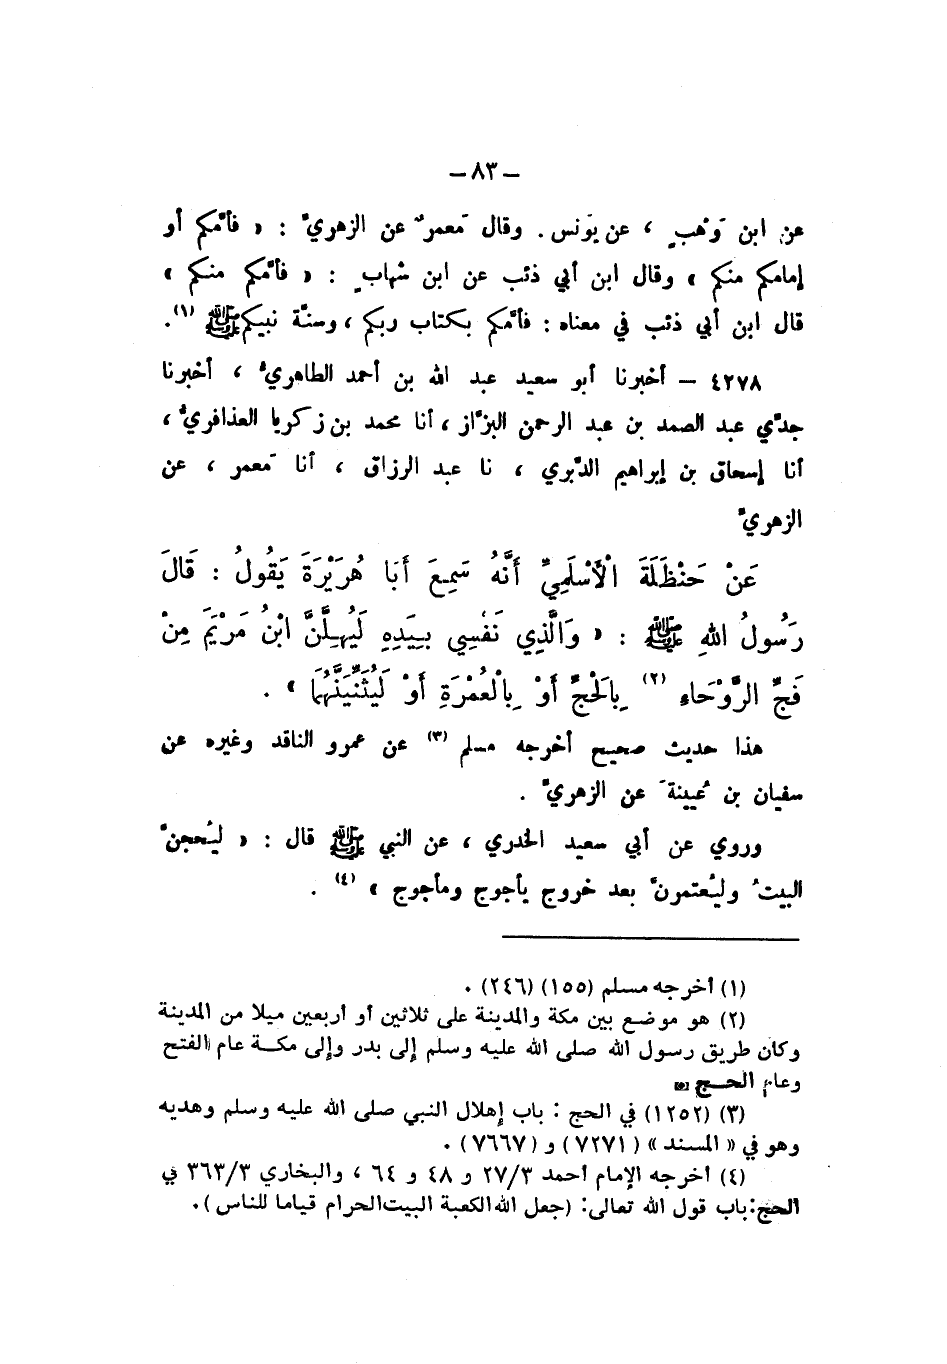 – ٨٣ –
عن ابن وَهْبٍ ، عن يوَنس . وقال مَعمرٌ عن الزهريِّ : « فأمَّكم أو
إمامكم منكم » وقال ابن أبي ذئب عن ابن شهابٍ : « فأمَّكم منكم »
قال ابن أبي ذئب في معناه : فأمَّكم بكتاب ربكم ، وسنَّة نبيكم ﷺ (١).
٤٢٧٨ – أخبرنا أبو سعيد عبد الله بن أحمد الطاهريُّ ، أخبرنا
جدِّي عبد الصمد بن عبد الرحمن البزَّاز ، أنا محمد بن زكريا العذافريُّ ،
أنا إسحاق بن إبراهيم الدَّبري ، نا عبد الرزاق ، أنا مَعمر ، عن
الزهريِّ
عَنْ حَنْظَلَةَ الْأَسْلَمِيِّ أَنَّهُ سَمِعَ أَبَا هُرَيْرَةَ يَقُولُ : قَالَ
رَسُولُ اللهِ ﷺ : « وَالَّذِي نَفْسِي بِيَدِهِ لَيُهِلَّنَّ ابْنُ مَرْيَمَ مِنْ
فَجِّ الرَّوْحَاءِ (٢) بِالْحَجِّ أَوْ بِالْعُمْرَةِ أَوْ لَيُثَنِّيَنَّهُمَا » .
هذا حديث صحيح أخرجه مسلم (٣) عن عمرو الناقد وغيره عن
سفيان بن عُيينةَ عن الزهريِّ .
وروي عن أبي سعيد الخدري ، عن النبي ﷺ قال : « ليُحجنَّ
البيتُ وليُعتمرونَّ بعد خروج يأجوج ومأجوج » (٤) .
(١) أخرجه مسلم (١٥٥) (٢٤٦) .
(٢) هو موضع بين مكة والمدينة على ثلاثين أو أربعين ميلا من المدينة
وكان طريق رسول الله صلى الله عليه وسلم إلى بدر وإلى مكة عام الفتح
وعام الحج
(٣) (١٢٥٢) في الحج : باب إهلال النبي صلى الله عليه وسلم وهديه
وهو في « المسند » (٧٢٧١) و (٧٦٦٧) .
(٤) أخرجه الإمام أحمد ٢٧/٣ و ٤٨ و ٦٤ ، والبخاري ٣٦٣/٣ في
الحج: باب قول الله تعالى: (جعل الله الكعبة البيت الحرام قياما للناس) .